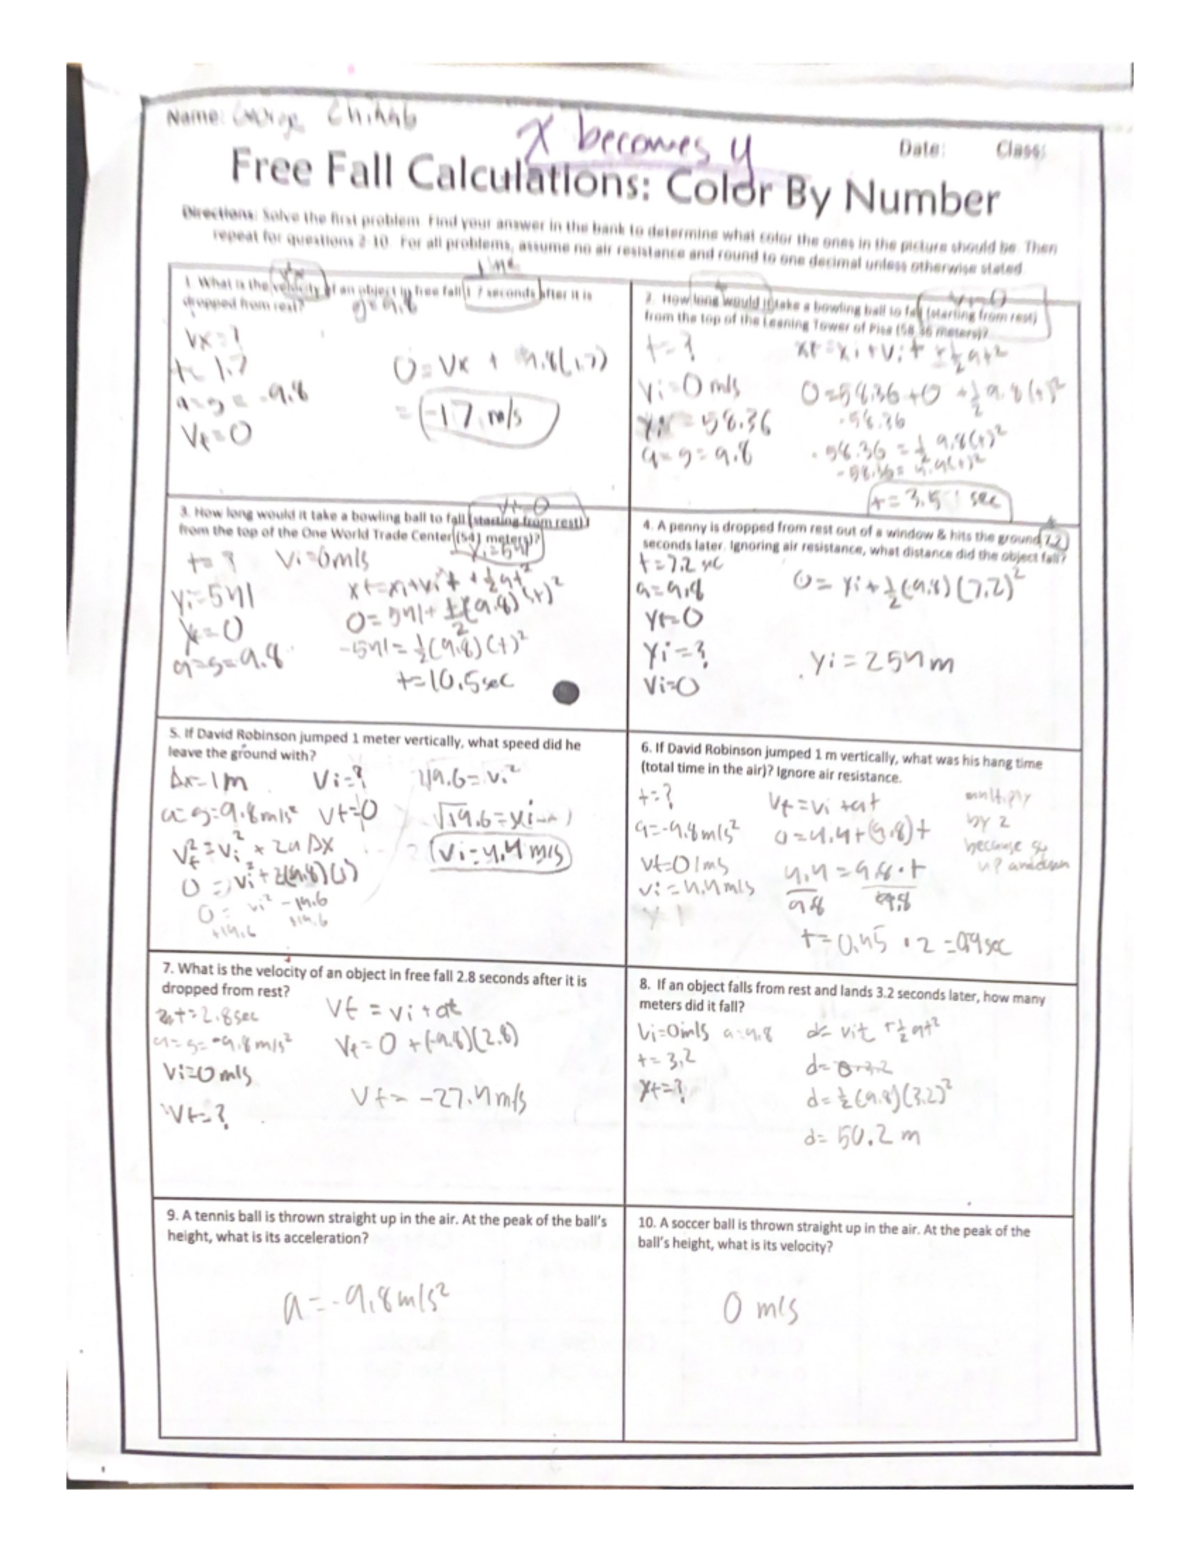 Name: Chihab
x becomes y
Date: Class:
Free Fall Calculations: Color By Number
Directions: Solve the first problem. Find your answer in the bank to determine what color the ones in the picture should be. Then
repeat for questions 2-10. For all problems, assume no air resistance and round to one decimal unless otherwise stated.
time
1. What is the velocity of an object in free fall 1.7 seconds after it is
dropped from rest?
g=9.8
Vx=?
t=1.7
a=g=-9.8
Vt=0
0=Vx + 9.8(1.7)
=-17 m/s
Vi=0
2. How long would it take a bowling ball to fall (starting from rest)
from the top of the Leaning Tower of Pisa (58.36 meters)?
t=?
Vi=0 m/s
58.36
a=g=9.8
xt=xi+vit+½at²
0=58.36+0+½9.8(t)²
-58.36
-58.36=½9.8(t)²
-58.36=4.9(t)²
t=3.51 sec
Vi=0
3. How long would it take a bowling ball to fall (starting from rest)
from the top of the One World Trade Center (541 meters)?
t=? Vi=0m/s
Yi=541
Yi=541
Yt=0
a=g=9.8
xt=xi+vit+½at²
0=541+½(9.8)(t)²
-541=½(9.8)(t)²
t=10.5sec
4. A penny is dropped from rest out of a window & hits the ground 7.2
seconds later. Ignoring air resistance, what distance did the object fall?
t=7.2 sec
a=9.8
Yt=0
Yi=?
Vi=0
0=Yi+½(9.8)(7.2)²
Yi=254m
5. If David Robinson jumped 1 meter vertically, what speed did he
leave the ground with?
Δx=1m Vi=?
a=g=9.8m/s² Vt=0
Vt²=Vi²+2aΔx
0=Vi²+2(9.8)(1)
0=Vi²-19.6
+19.6 +19.6
19.6=Vi²
√19.6=
Vi=4.4m/s
6. If David Robinson jumped 1 m vertically, what was his hang time
(total time in the air)? Ignore air resistance.
t=?
a=-9.8m/s²
Vt=0m/s
Vi=4.4m/s
Vt=Vi+at
0=4.4+(9.8)t
4.4=9.8·t
9.8 9.8
t=0.45·2=0.9sec
multiply
by 2
because
7. What is the velocity of an object in free fall 2.8 seconds after it is
dropped from rest?
t=2.8sec
a=g=-9.8m/s²
Vi=0m/s
Vt=?
Vt=Vi+at
Vt=0+(-9.8)(2.8)
Vt=-27.4m/s
8. If an object falls from rest and lands 3.2 seconds later, how many
meters did it fall?
Vi=0m/s a=9.8
t=3.2
Xt=?
d=Vit+½at²
d=0·3.2
d=½(9.8)(3.2)²
d=50.2m
9. A tennis ball is thrown straight up in the air. At the peak of the ball's
height, what is its acceleration?
a=-9.8m/s²
10. A soccer ball is thrown straight up in the air. At the peak of the
ball's height, what is its velocity?
0 m/s